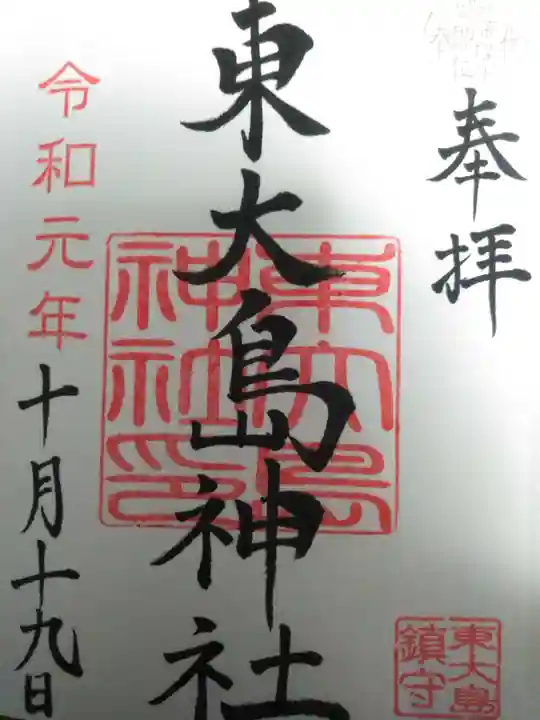 奉拝
東大島神社
東大島神社印
東大島
鎮守
令和元年
十月十九日